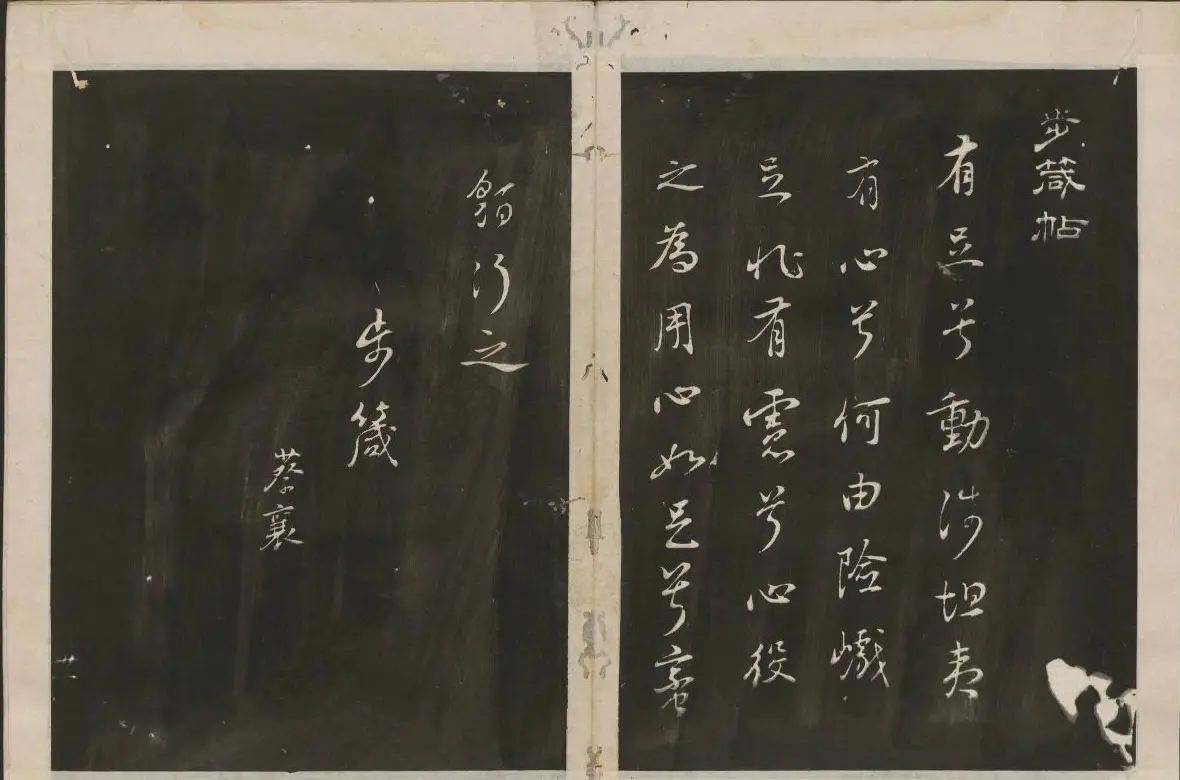 步箴帖
有足兮動涉坦夷
有心兮何由險巇
足非有慮兮心役
之為用心如足兮蠻
貊行之
步箴
蔡襄